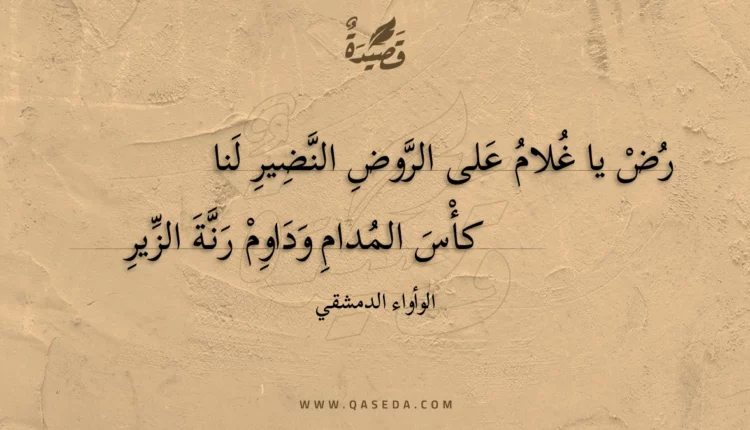 قَصِيدَةٌ
رُضْ يا غُلامُ عَلى الرَّوضِ النَّضِيرِ لَنا
كأْسَ المُدامِ وَدَاوِمْ رَنَّةَ الزِّيرِ
الوأواء الدمشقي
WWW.QASEDA.COM